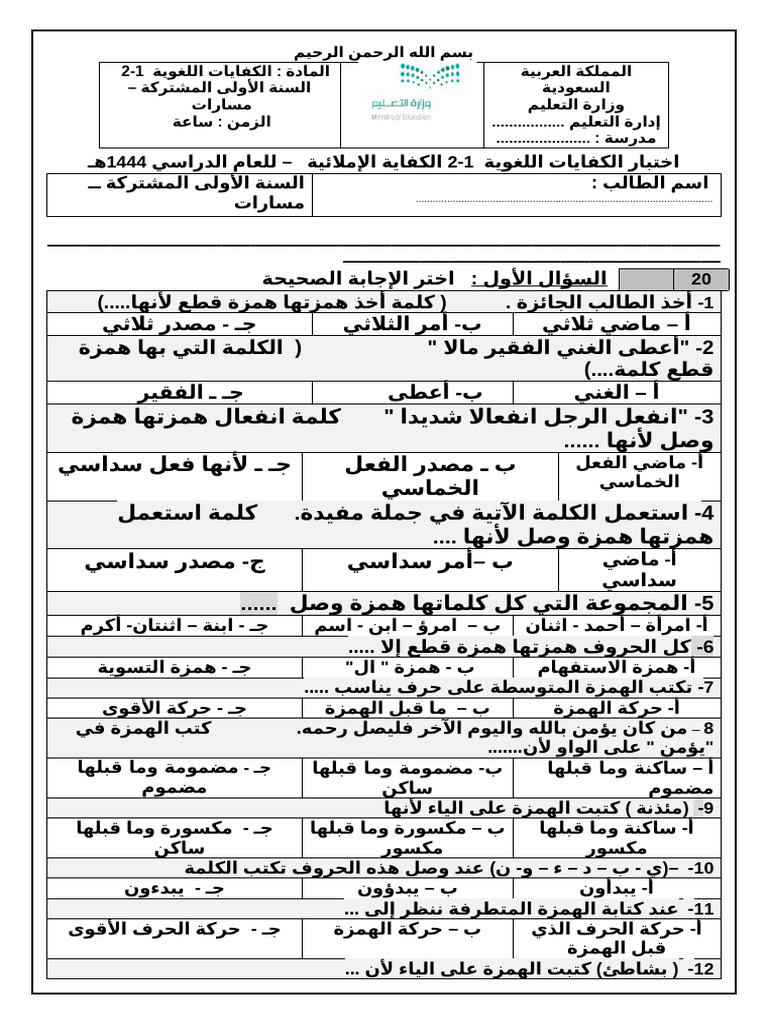 بسم الله الرحمن الرحيم
المملكة العربية
السعودية
وزارة التعليم
إدارة التعليم .................
مدرسة : ......................
وزارة التعليم
Ministry of Education
المادة : الكفايات اللغوية 1-2
السنة الأولى المشتركة –
مسارات
الزمن : ساعة
اختبار الكفايات اللغوية 1-2 الكفاية الإملائية – للعام الدراسي 1444هـ
اسم الطالب :
السنة الأولى المشتركة ــ
مسارات
20
السؤال الأول : اختر الإجابة الصحيحة
1- أخذ الطالب الجائزة . ( كلمة أخذ همزتها همزة قطع لأنها.....)
أ – ماضي ثلاثي
ب- أمر الثلاثي
جـ - مصدر ثلاثي
2- "أعطى الغني الفقير مالا " ( الكلمة التي بها همزة
قطع كلمة....)
أ – الغني
ب- أعطى
جـ ـ الفقير
3- "انفعل الرجل انفعالا شديدا " كلمة انفعال همزتها همزة
وصل لأنها ......
أ- ماضي الفعل
الخماسي
ب ـ مصدر الفعل
الخماسي
جـ ـ لأنها فعل سداسي
4- استعمل الكلمة الآتية في جملة مفيدة. كلمة استعمل
همزتها همزة وصل لأنها ....
أ- ماضي
سداسي
ب –أمر سداسي
ج- مصدر سداسي
5- المجموعة التي كل كلماتها همزة وصل ......
أ- امرأة – أحمد - اثنان
ب – امرؤ – ابن - اسم
جـ - ابنة – اثنتان- أكرم
6- كل الحروف همزتها همزة قطع إلا .....
أ- همزة الاستفهام
ب - همزة " ال"
جـ - همزة التسوية
7- تكتب الهمزة المتوسطة على حرف يناسب .....
أ- حركة الهمزة
ب – ما قبل الهمزة
جـ - حركة الأقوى
8 – من كان يؤمن بالله واليوم الآخر فليصل رحمه. كتب الهمزة في
"يؤمن " على الواو لأن.......
أ – ساكنة وما قبلها
مضموم
ب- مضمومة وما قبلها
ساكن
جـ - مضمومة وما قبلها
مضموم
9- (مئذنة ) كتبت الهمزة على الياء لأنها
أ- ساكنة وما قبلها
مكسور
ب – مكسورة وما قبلها
مكسور
جـ - مكسورة وما قبلها
ساكن
10- –(ي - ب – د – ء – و- ن) عند وصل هذه الحروف تكتب الكلمة
أ- يبدأون
ب – يبدؤون
جـ - يبدءون
11- عند كتابة الهمزة المتطرفة ننظر إلى ...
أ- حركة الحرف الذي
قبل الهمزة
ب – حركة الهمزة
جـ - حركة الحرف الأقوى
12- ( بشاطئ) كتبت الهمزة على الياء لأن ...